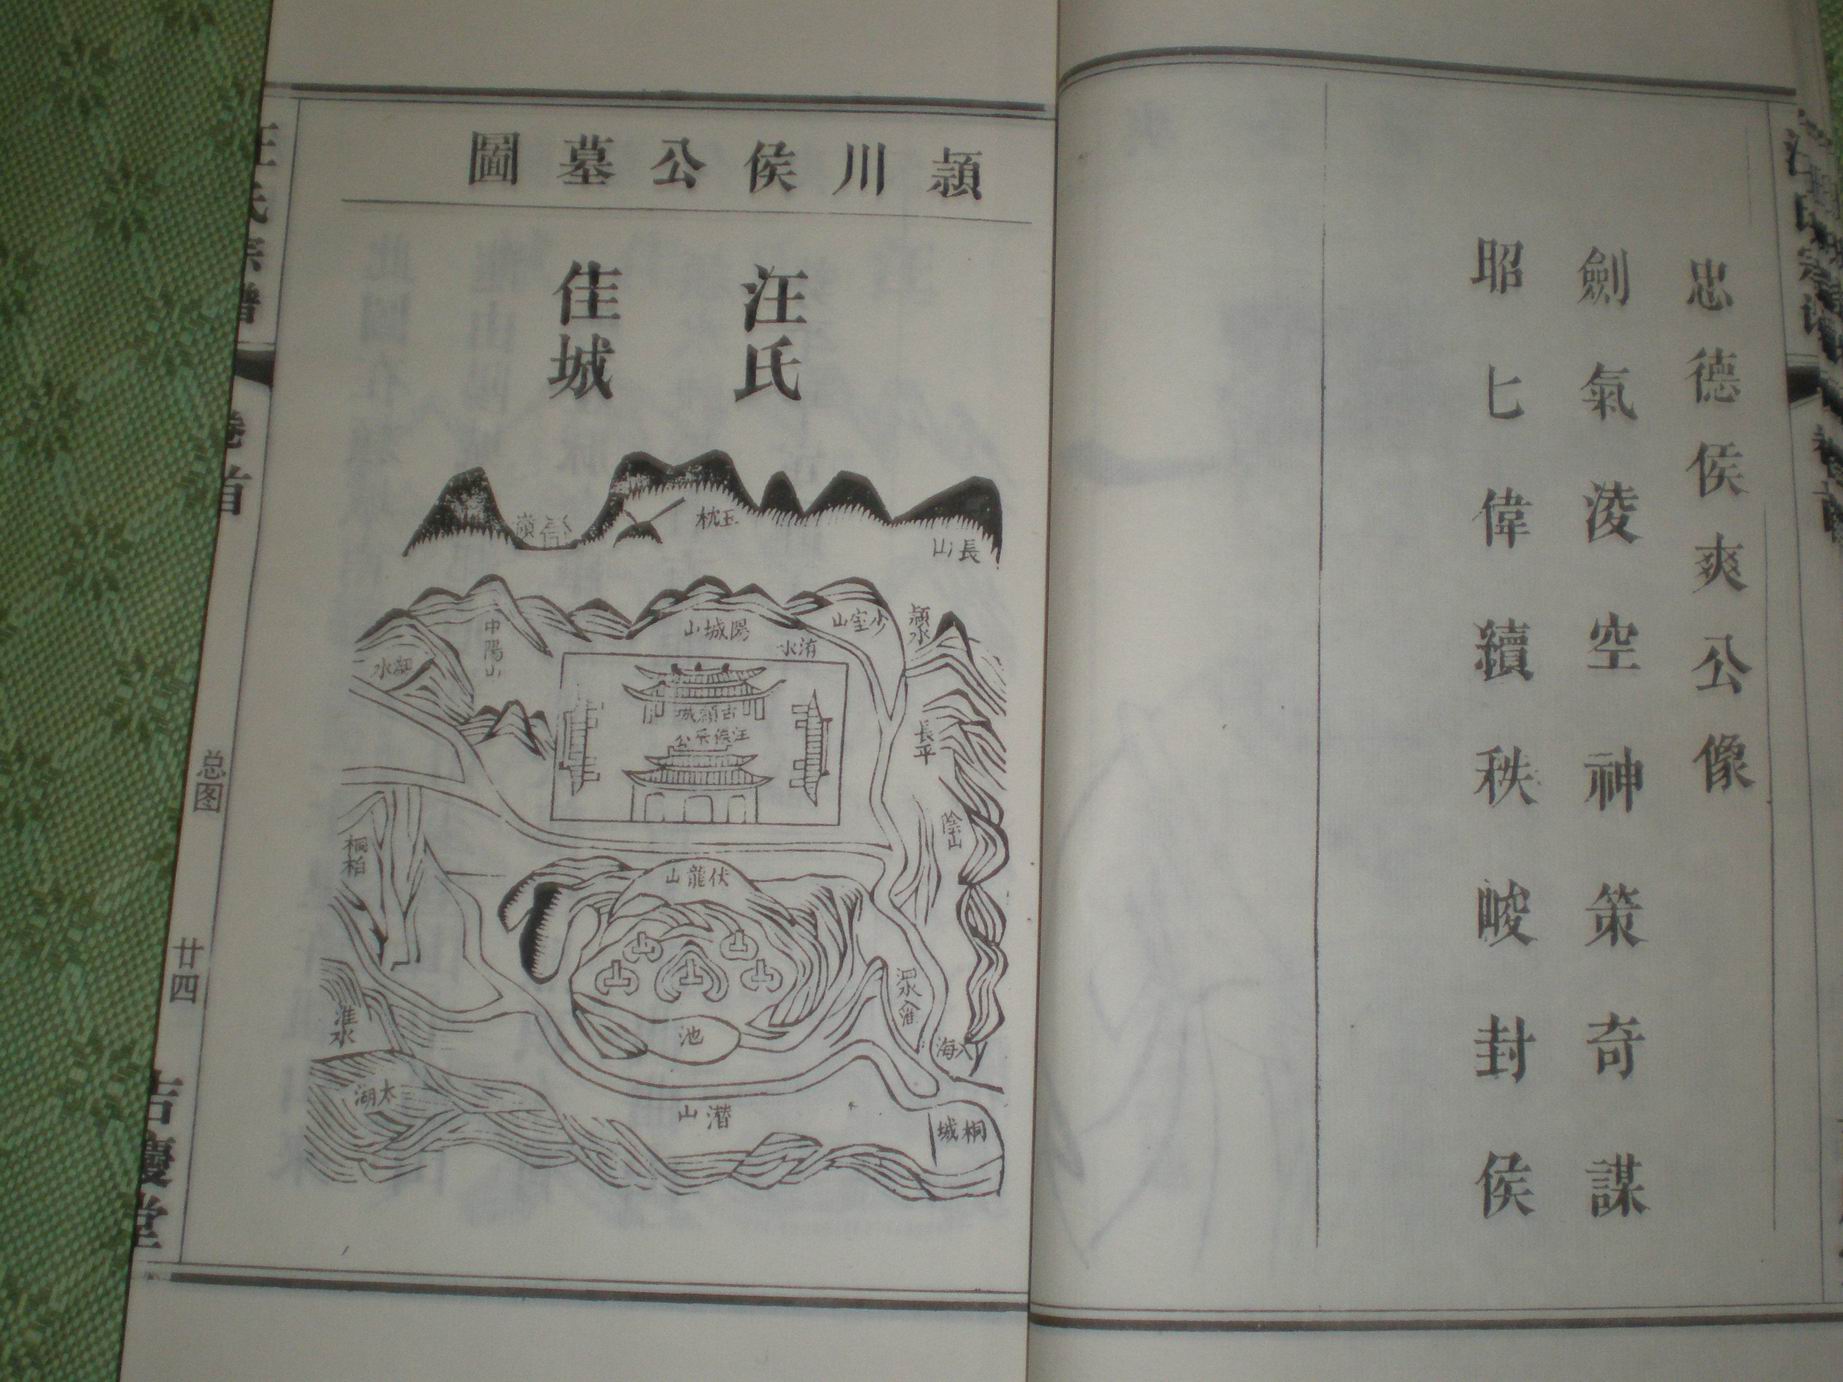 忠德侯爽公像
劍氣淩空神策奇謀
昭匕偉績秩峻封侯
潁川侯公墓圖
汪氏
佳城
玉枕
長山
潁水
少室山
陽城山
洧水
中陽山
古潁城
長平
陰山
桐柏
伏龍山
池
淮水
入海
太湖
潛山
桐城
汪氏宗譜
卷首
总图
廿四
吉慶堂